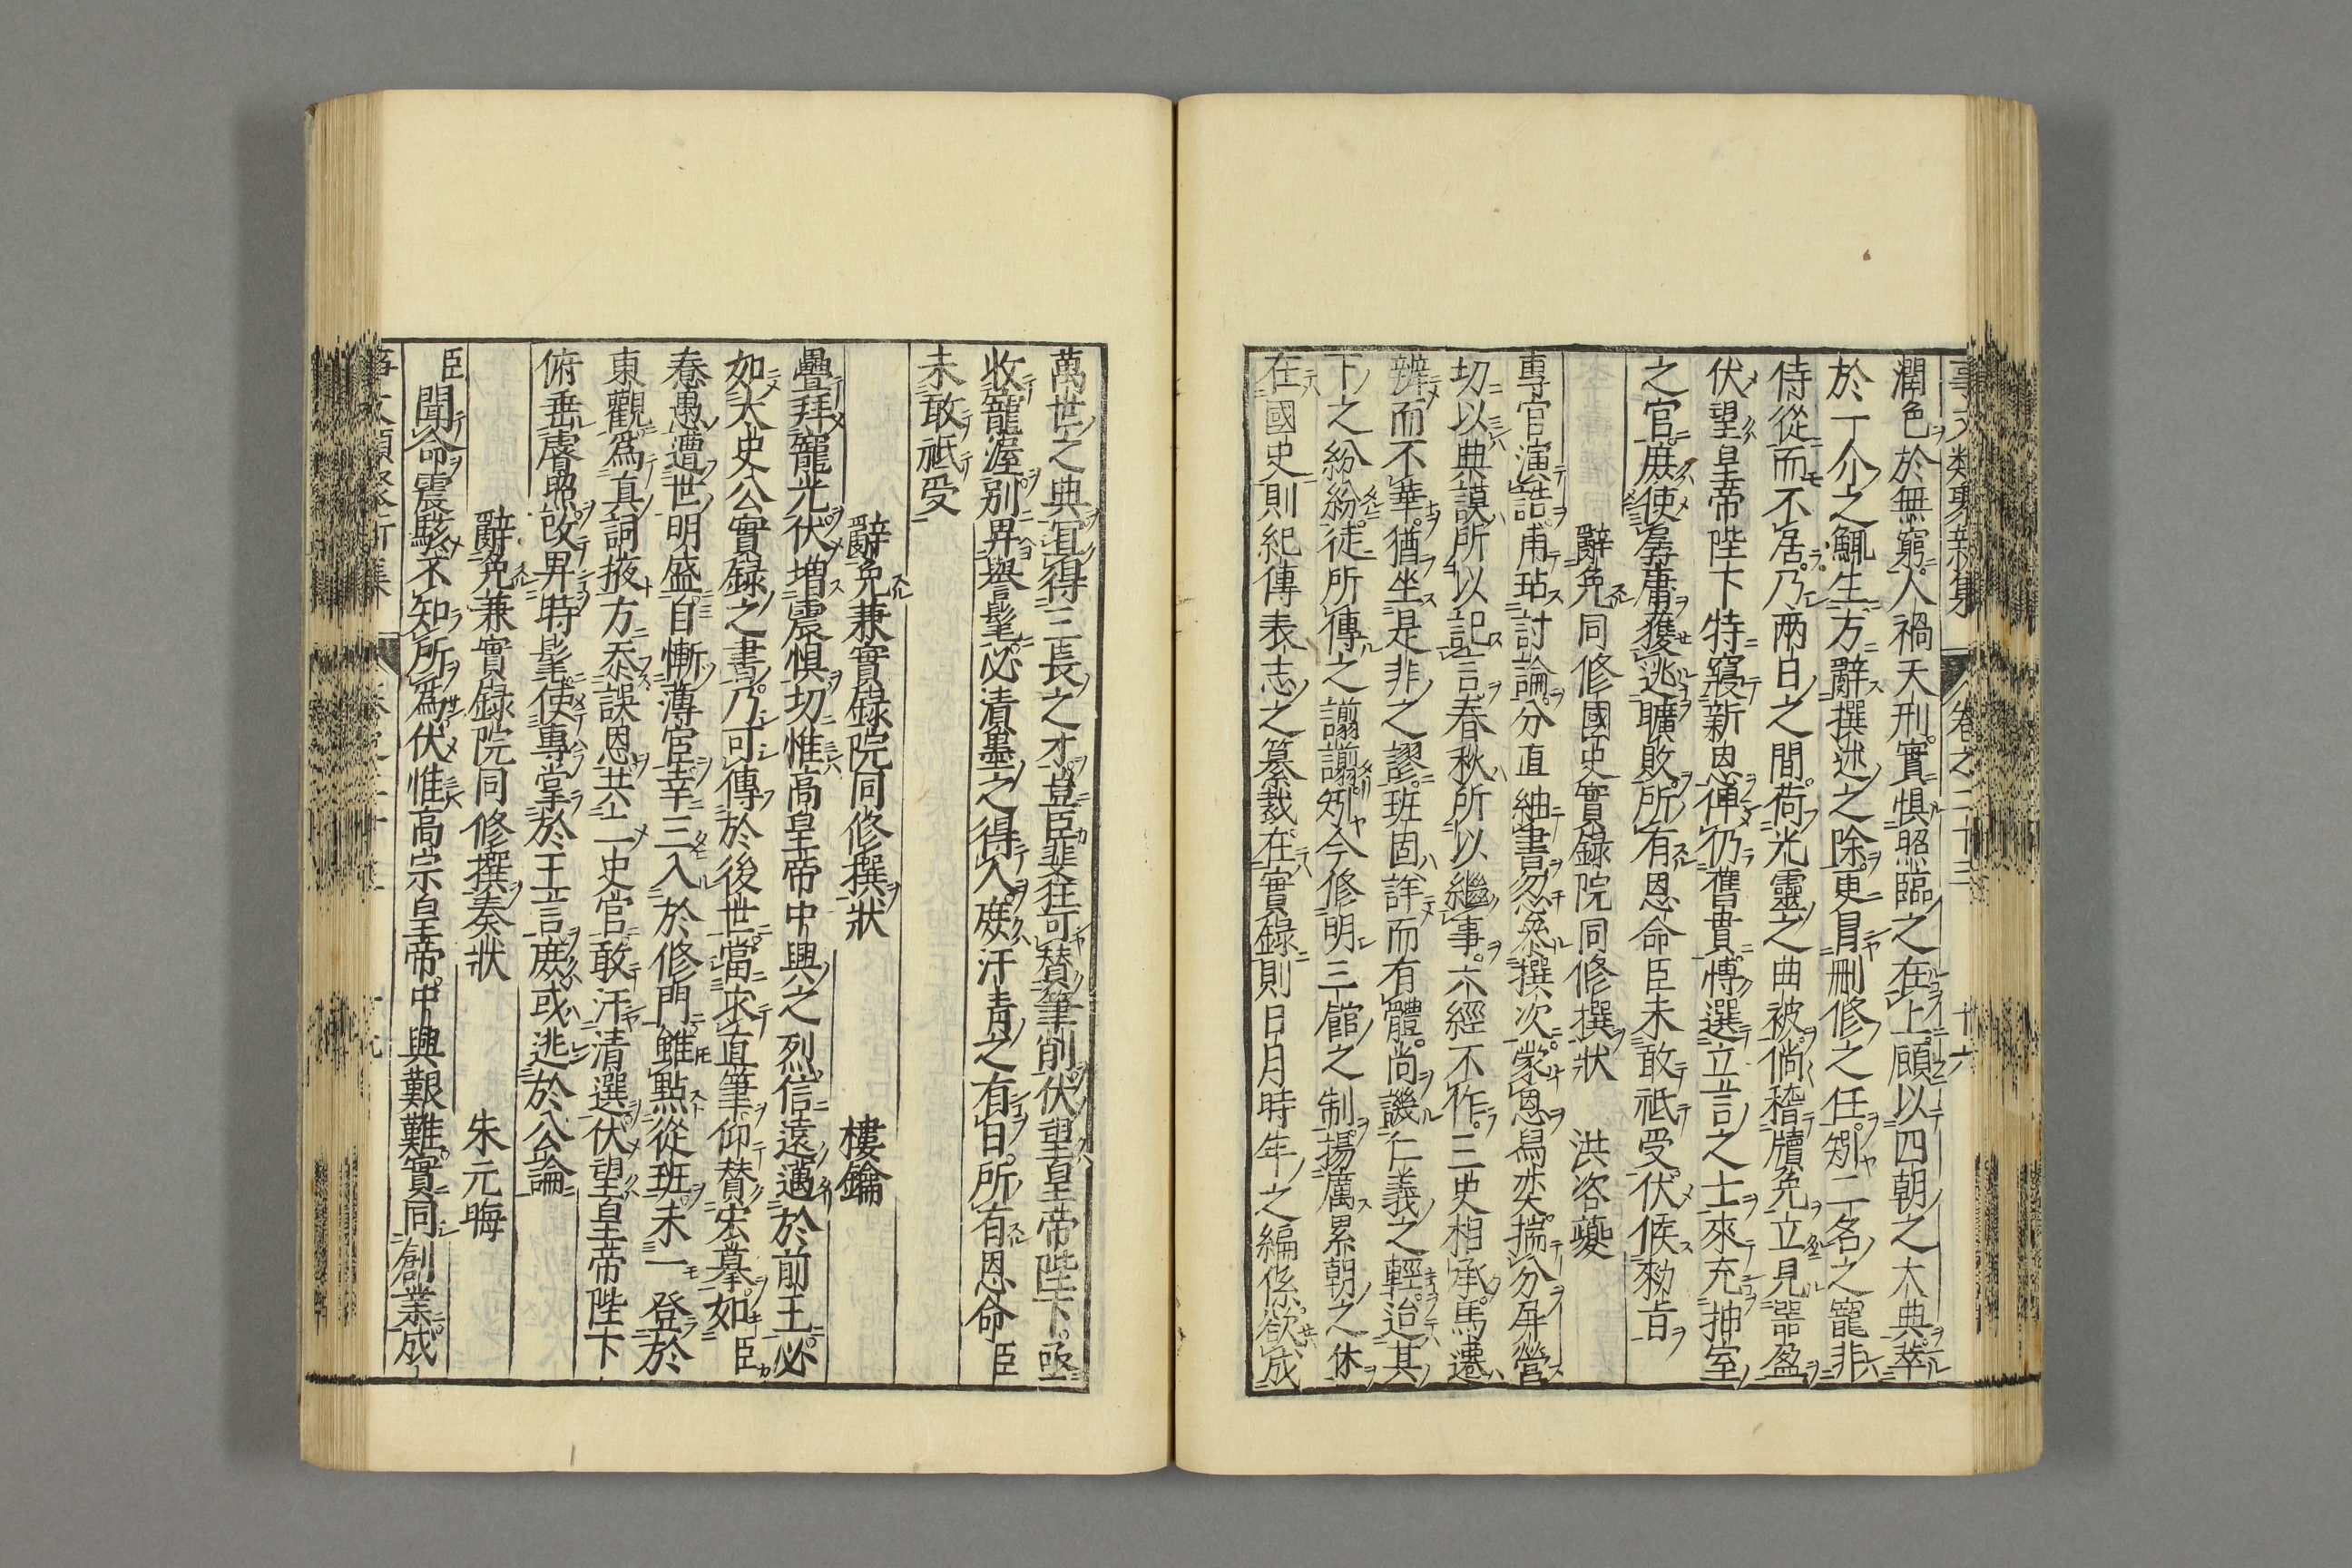 潤色於無窮人禍天刑實惧照臨之在上頋以四朝之大典萃
於一介之鯫生方辭撰述之除更冐刪修之任矧二名之寵非
侍從而不居乃兩日之間荷光靈之曲被倘稽牘免立見噐盈
伏望皇帝陛下特寢新恩俾仍舊貫愽選立言之士來充抽室
之官庻使孱庸獲逃曠敗所有恩命臣未敢祗受伏候勑旨
辭免同修國史實錄院同修撰狀 洪咨夔
專官演誥甫玷討論分直紬書忽叅撰次蒙恩舄奕揣分屏營
切以典謨所以記言春秋所以繼事六經不作三史相承馬遷
辨而不華猶坐是非之謬班固詳而有體尚譏仁義之輕迨其
下之紛紛徒所傳之謭謭矧今修明三館之制揚厲累朝之休
在國史則紀傳表志之纂裁在實錄則日月時年之編係欲成
萬世之典冝得三長之才豈臣斐狂可賛筆削伏望皇帝陛下亟
收寵渥別畀譽髦必清墨之得人庻汗青之有日所有恩命臣
未敢祇受
辭免兼實錄院同修撰狀 樓鑰
疊拜寵光伏增震惧切惟高皇帝中興之烈信遠邁於前王必
如太史公實録之書乃可傳於後世當求直筆仰賛宏摹如臣
惷愚遭世明盛自慚薄宦幸三入於修門雖點從班未一登於
東觀為真詞掖方忝誤恩共二史官敢汗清選伏望皇帝陛下
俯垂睿照改畀時髦使專掌於王言庻或逃於公論
辭免兼實錄院同修撰奏狀 朱元晦
臣聞命震駭不知所為伏惟高宗皇帝中興艱難實同創業成